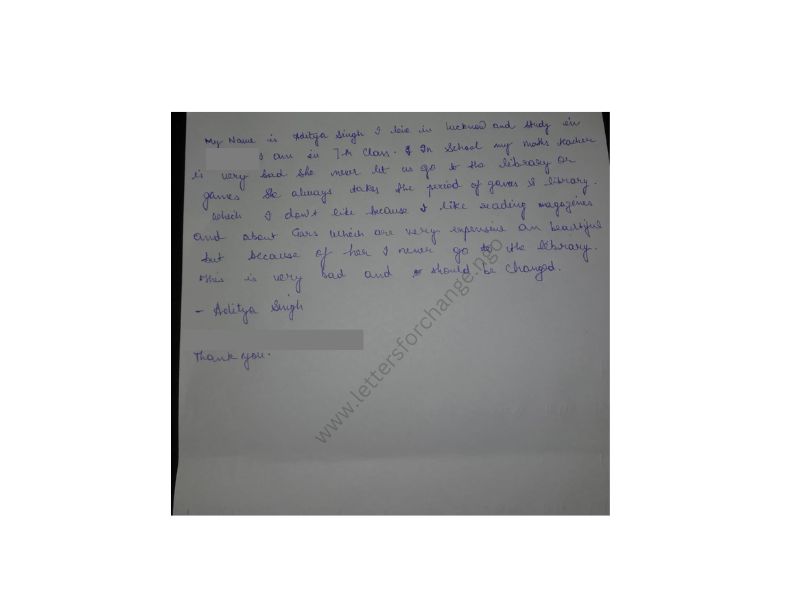 My Name is Aditya Singh I live in Lucknow and study in
I am in 7th Class. In School my maths teacher
is very bad She never let us go to the library or
games She always takes the period of games & library.
Which I don't like because I like reading magazines
and about Cars Which are very expensive an beautiful
but because of her I never go to the library.
this is very bad and should be changed.
- Aditya Singh
Thank you.
www.lettersforchange.ngo